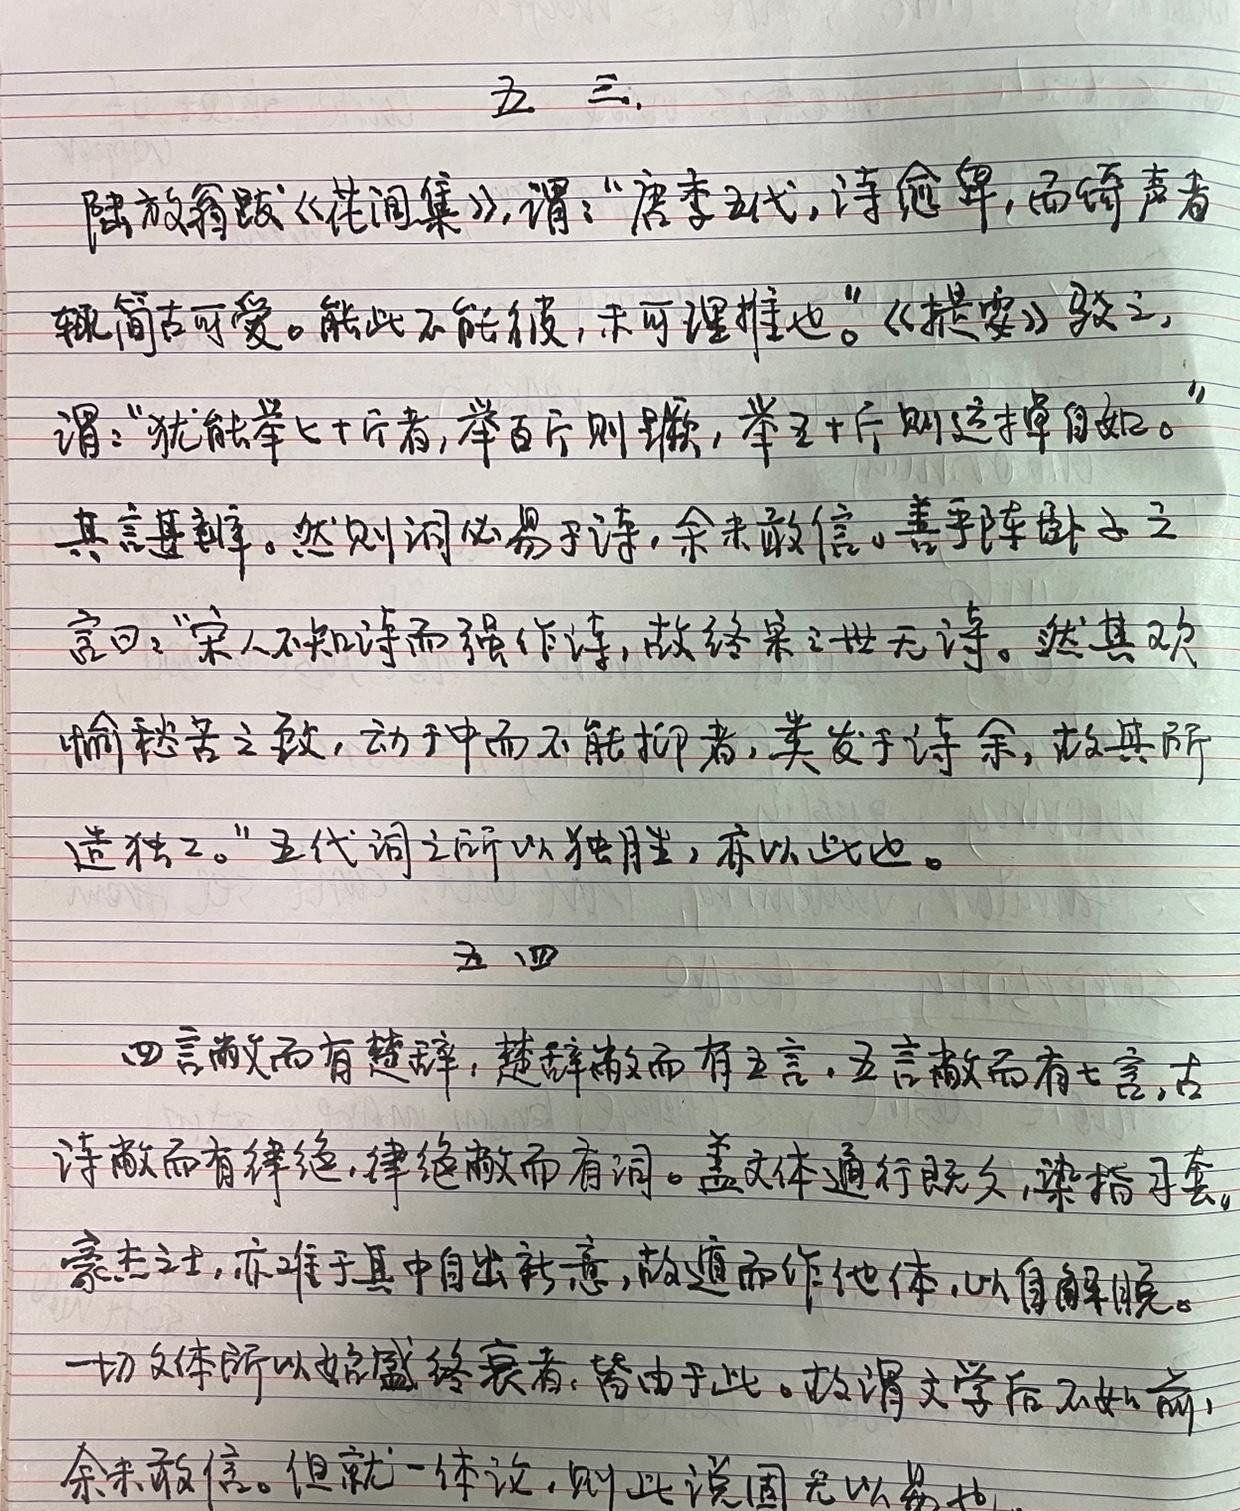 五 三
陆放翁跋《花间集》,谓:“唐季五代,诗愈卑,而倚声者
辄简古可爱。能此不能彼,未可理推也。”《提要》驳之,
谓:“犹能举七十斤者,举百斤则蹶,举五十斤则运掉自如。”
其言甚辨。然则词必易于诗,余未敢信。善乎陈卧子之
言曰:“宋人不知诗而强作诗,故终宋之世无诗。然其欢
愉愁苦之致,动于中而不能抑者,类发于诗余,故其所
造独工。”五代词之所以独胜,亦以此也。
五 四
四言敝而有楚辞,楚辞敝而有五言,五言敝而有七言,古
诗敝而有律绝,律绝敝而有词。盖文体通行既久,染指习套。
豪杰之士,亦难于其中自出新意,故遁而作他体,以自解脱。
一切文体所以始盛终衰者,皆由于此。故谓文学后不如前,
余未敢信。但就一体论,则此说固无以易也。